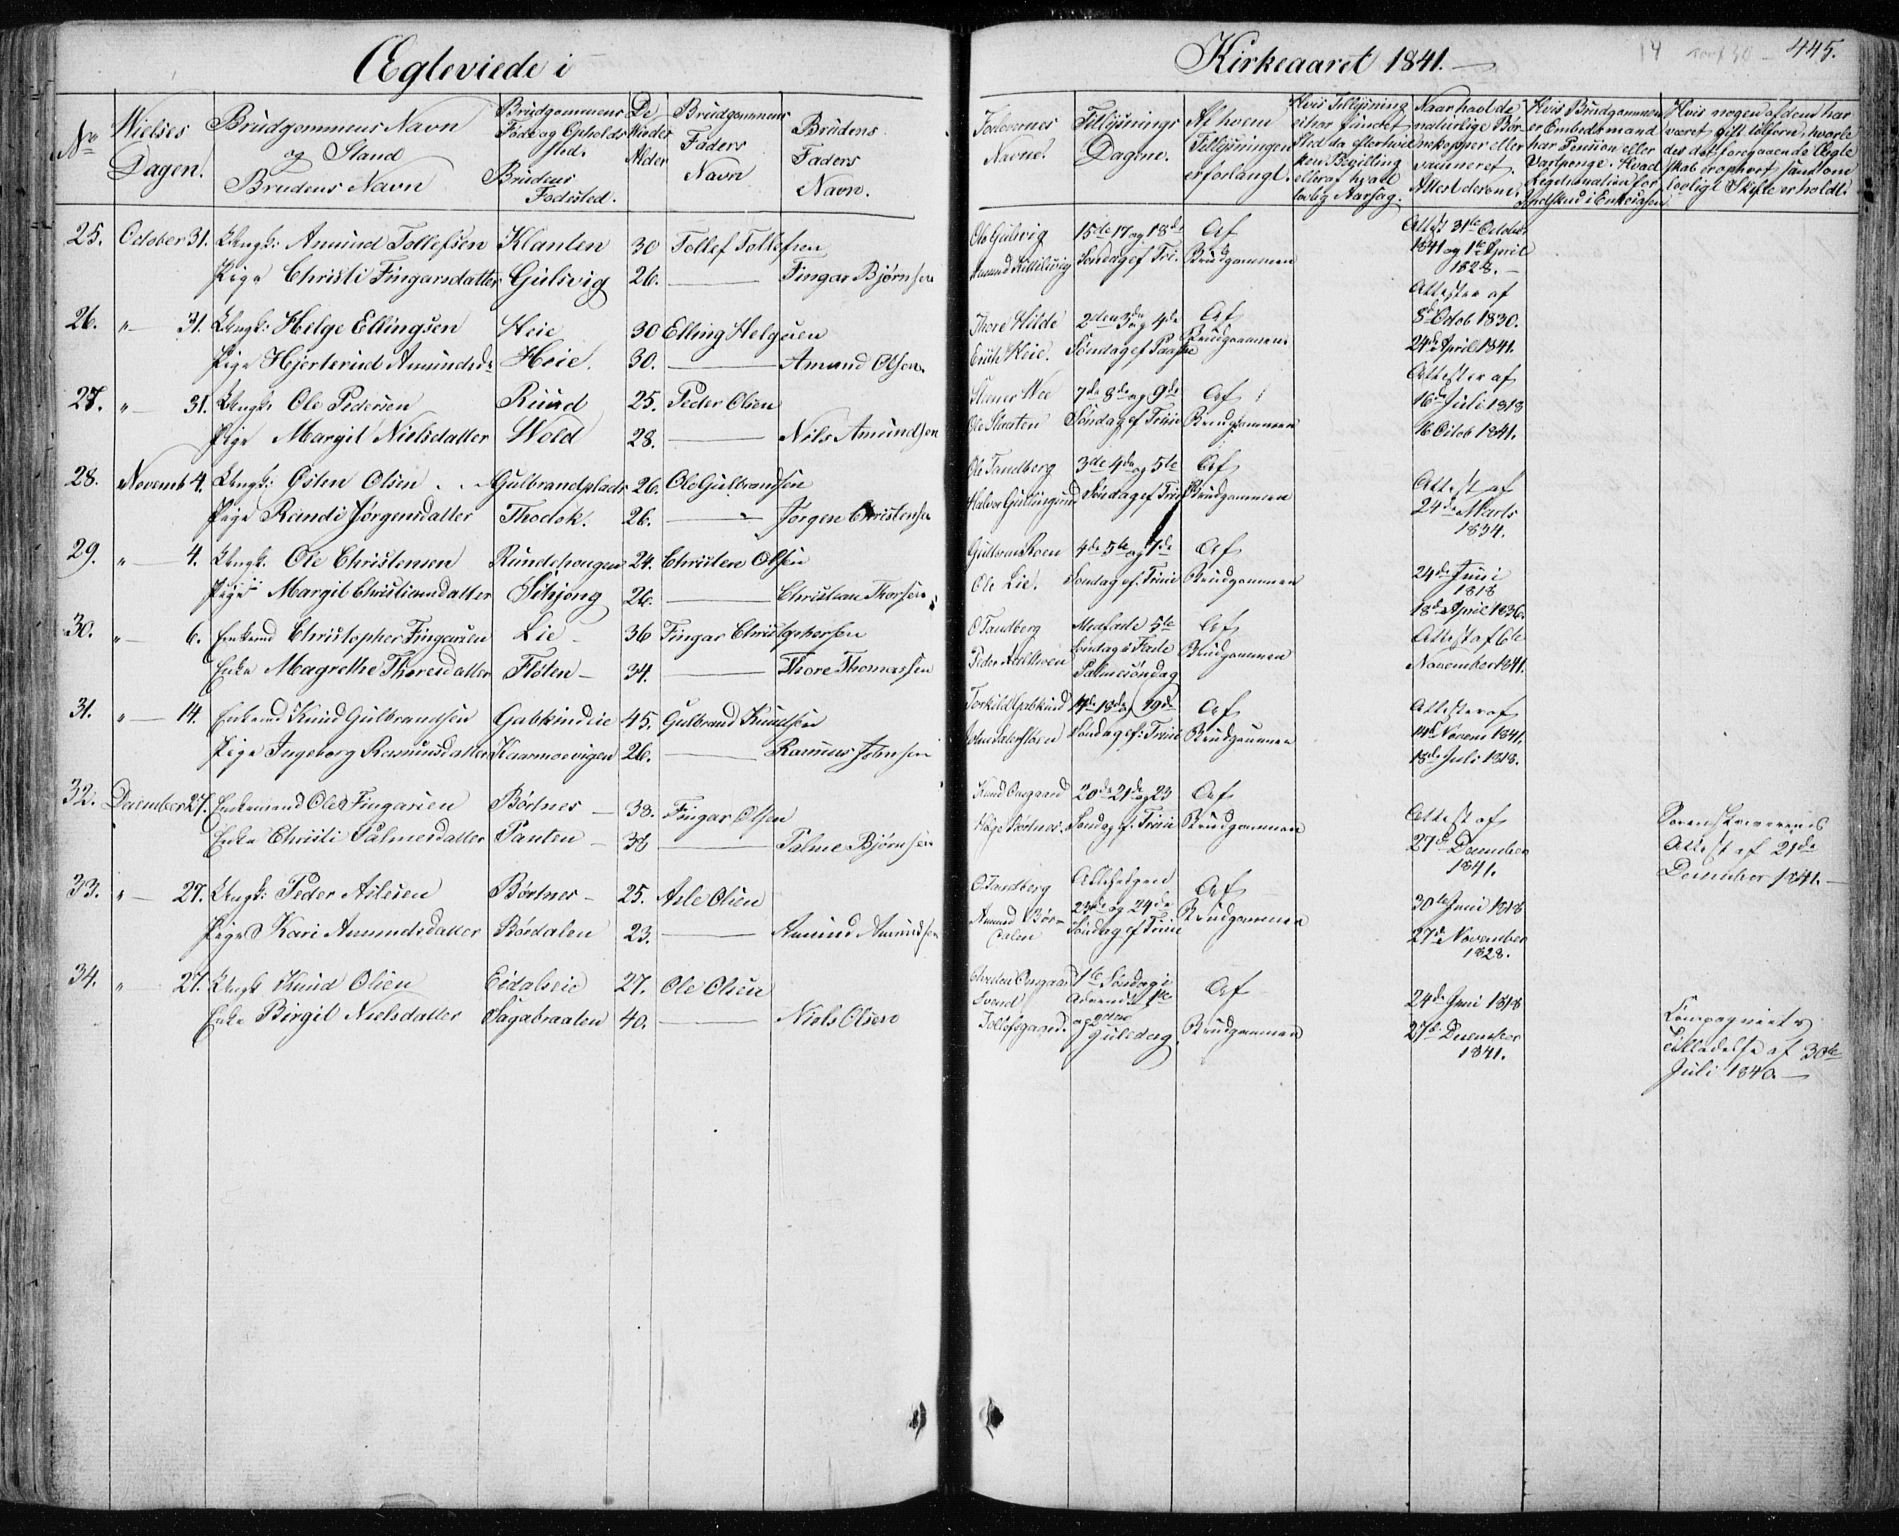 Ægteviede i
Kirkeaaret 1841.
445.
No
Vielses Dagen.
Brudgommens Navn og Stand Brudens Navn
Brudgommens Føde og Opholds sted. Brudens Fødested.
De Viedes Alder
Brudgommens Faders Navn
Brudens Faders Navn.
Forlovernes Navne.
Tillysnings Dagene.
Af hvem Tillysningen er forlangt.
Hvis Tillysning ei har fundet Sted da efter hvilken Bevilling eller af hvad lovlig Aarsag.
Naar havt de naturlige Børnekopper eller vaccineret. Attest derom.
Hvis Brudgommen er Embedsmand har Pension eller Vartpenge. Hvad Legitimation for Indskud i Enkecassen
Hvis nogen af dem har været gift tilforn, hvorledes det foregaaende Ægteskab er ophørt samt om lovligt Skifte er holdt.
25. October 31. Ungk: Amund Tollefsen Klanten 30 Tollef Tollefsen
Pige Christi Fingarsdatter Gulsvig 26. — Fingar Bjørnsen
Ole Gulsvig 15de 17 og 18de Af
Søndag ef Tri. Brudgommen
Attest 31te Octobr
1841 og 1te April
1828. —
26. " — 31. Ungk: Helge Ellingsen Heie 30 Elling Helgesen
Pige Hjerterud Amundsd: Heie. 30. — Amund Olsen.
Thore Hilde 2den 3de og 4de Af
Heie. Søndag ef Paaske Brudgommen
Attester af
8de Octob 1830.
24de April 1841.
27. " — 31. Ungk: Ole Pedersen Ruud 25. Peder Olsen
Pige Margit Nielsdatter Wold 28. — Nils Amundsen
7de 8de og 9de Af
Ole Skaten Søndag ef Trini Brudgommen
Attester af
16de Juli 1818
16 Octob 1841.
28. Novemb 4. Ungk: Osten Olsen Gulbrandplads 26. Ole Gulbrandsen
Pige Randi Jørgensdatter Thodok. 26. — Jørgen Christensen
Ole Tandberg 3de 4de og 5te Af
Halvor Søndag ef Trini Brudgommen
Attest af
24de Marts
1834.
29. " — 4. Ungk. Ole Christensen Rundehougen 24. Christen Olsen
Pige Margit Christiansdatter 26. — Christian Thorsen
4de 5te og 7de Af
Ole Lie. Søndag ef: Trini Brudgommen
24de Juni
1818
18de April 1836
30. " — 6. Enkemd Christopher Fingarsen Lie — 36 Fingar Christophersen
Enke Magrethe Thoresdatter Fløten — 34. — Thore Thomassen
O Tandberg Midfaste 5te Af
Peder Søndag i Faste Brudgommen
Palmesøndag
Attest af 6te
November 1841.
31. " — 14. Enkemd Knud Gulbrandsen Gabkindeie 45. Gulbrand Knudsen
Pige Ingeborg Rasmusdatter Kaarmoevigen 26. — Rasmus Johnsen
Torkild Gabkind 17de 18de og 19de Af
Søndag ef: Trini Brudgommen
Attester af
14de Novem 1841.
18de Juli 1818.
32. December 27. Enkemand Ole Fingarsen Børtnes — 38. Fingar Olsen
Enke Christi Palmesdatter Panten — 38 — Palme Bjørnsen
Knud 20de 21de og 23 Af
Børtnes. Søndag ef: Trini Brudgommen
Attest af
27de December
1841.
Sorenskriverens
Attest af 21de
December 1841. —
33. " — 27. Ungk: Peder Aslesen Børtnes — 25. Asle Olsen
Pige Kari Amundsdatter Børdalen 23. — Amund Amundsen
O Tandberg Allehelgen Af
Amund Børdalen 23de og 24de Brudgommen
Søndag ef Trini
30te Juni 1818
27de November
1828.
34. " — 27. Ungk Knud Olsen Eidalseie 27. Ole Olsen
Enke Birgit Nielsdatter Sagabraaten 40. — Niels Olsen
1te Søndag i Af
Svend Advendt 1te
Tollefsgaard. og Juledag. Brudgommen
24de Juni 1818
27de December
1841.
Compagniets
tilladelse af 30te
Juli 1840. —